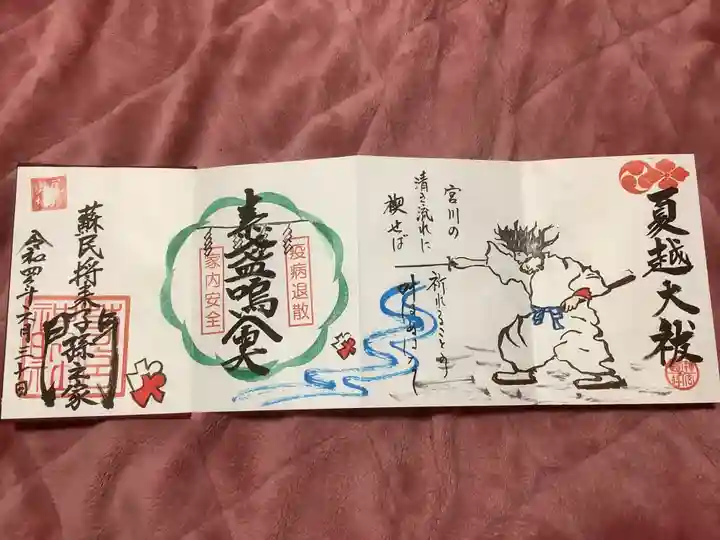 夏越大祓
宮川の
清き流れに
禊せば
祈れることの
叶はぬはなし
素盞嗚尊
疫病退散
家内安全
蘇民将来子孫之家
令和四年六月三十日